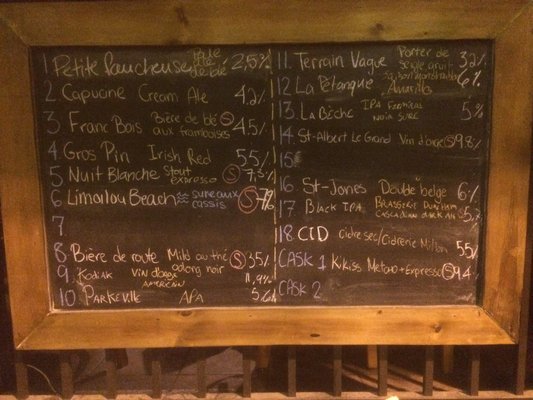 1 Petite Faucheuse 2,5%
2. Capucine Cream Ale 4,2%
3. Franc Bois Bière de blé Ⓢ 4,5%
aux framboises
4 Gros Pin Irish Red 5,5%
5 Nuit Blanche Stout Ⓢ 7,3%
espresso
6 Limoilou Beach ≈ sureaux Ⓢ
cassis
7
8 Bière de route Mild au thé Ⓢ 3,5%
9. Kodiak Vin d'orge noir
américain 11,9%
10. Parkeville APA
11. Terrain Vague Porter de 3,2%
12 La Pétanque 6%
Amarillo
13. La Bêche IPA 5%
noir sure
14. St-Albert Le Grand Vin d'orge Ⓢ 9.8%
15
16 St-Jones Double belge 6%
17 Black IPA Brasserie Dunham
Cascadian dark
18. CID cidre sec/Cidrerie 5,5%
CASK 1 Kikiss +Expresso Ⓢ 9.4%
CASK 2